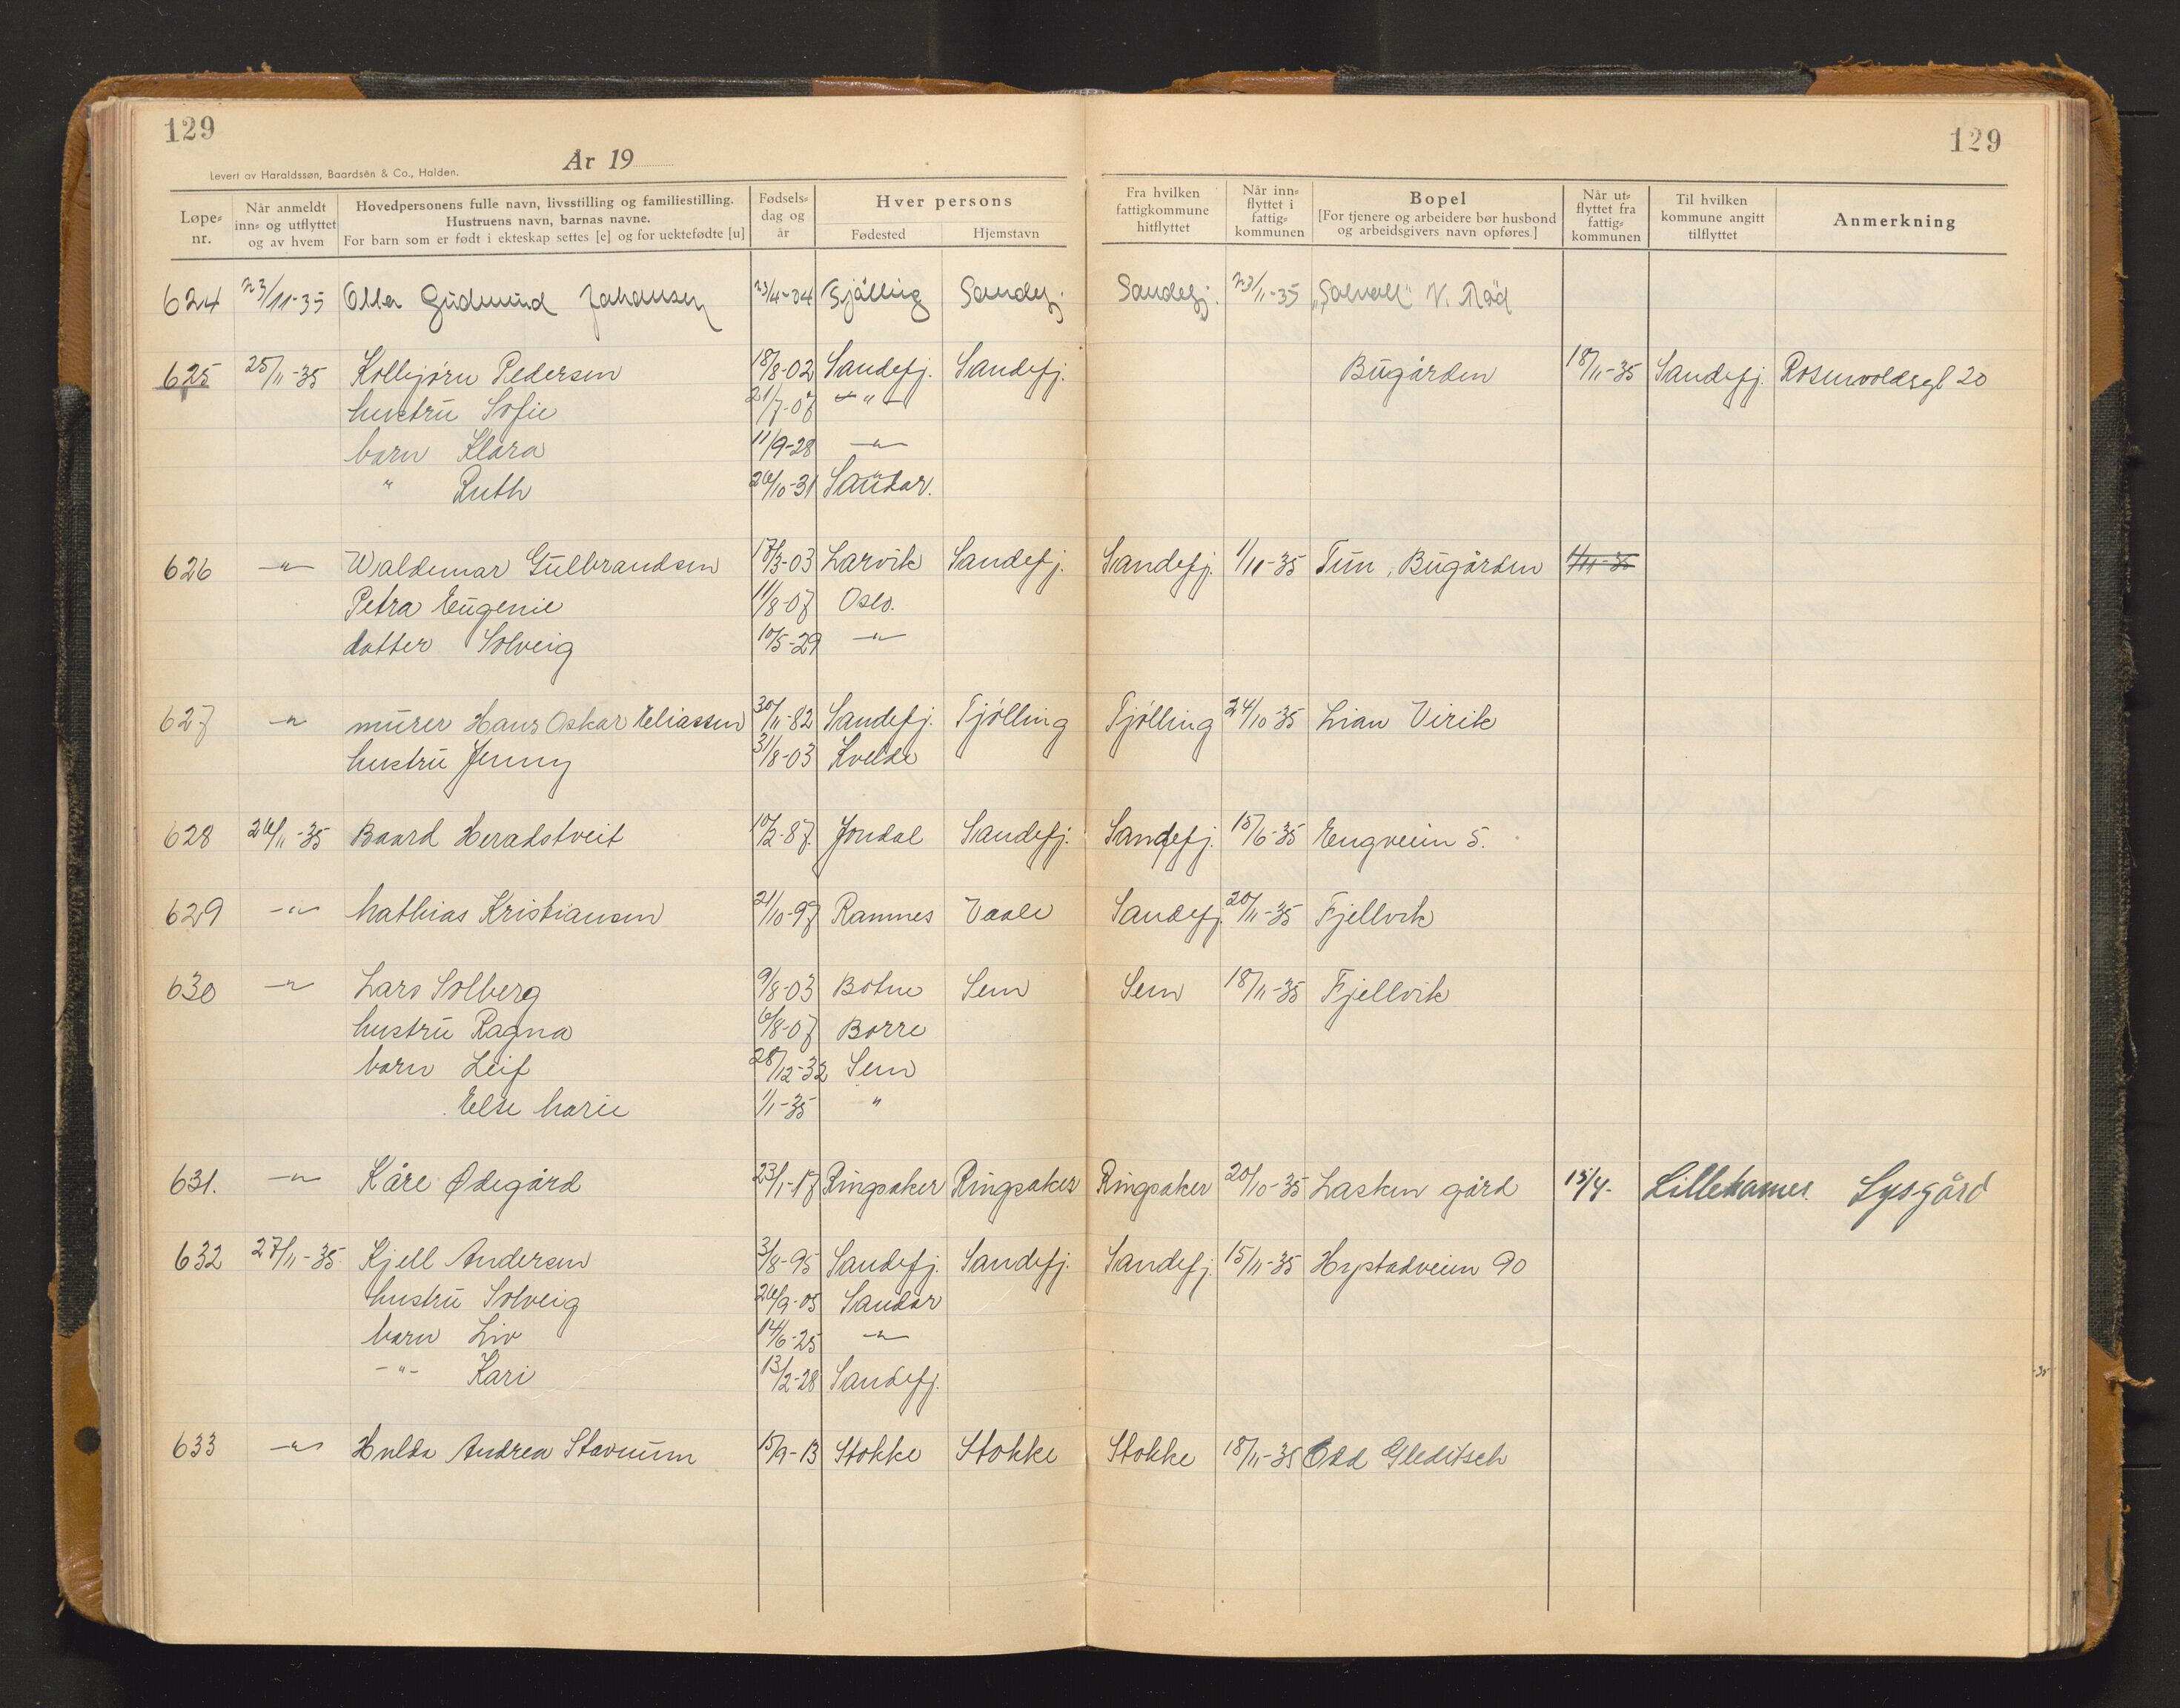 129
129
År 19
Levert av Haraldssøn, Baardsén & Co., Halden.
Løpe-nr. | Når anmeldt inn- og utflyttet og av hvem | Hovedpersonens fulle navn, livsstilling og familiestilling. Hustruens navn, barnas navne. For barn som er født i ekteskap settes [e] og for uektefødte [u] | Fødsels-dag og år | Hver persons Fødested | Hjemstavn | Fra hvilken fattigkommune hitflyttet | Når inn-flyttet i fattig-kommunen | Bopel [For tjenere og arbeidere bør husbond og arbeidsgivers navn opføres] | Når ut-flyttet fra fattig-kommunen | Til hvilken kommune angitt tilflyttet | Anmerkning
624 23/11-35 Gudmund Johansen 23/4-04 Tjölling Sandefj. Sandefj. 23/11-35 "Solvoll" V. Råd
625 25/11-35 Kolbjørn Pedersen 18/8-02 Sandefj. Sandefj. Bugården 18/11-35 Sandefj. Rosenvoldsgt 20
hustru Sofie 21/7-07 -"-
barn Klara 11/9-28 -"-
" Ruth 26/10-31 Sandar.
626 -"- Waldemar Gulbrandsen 17/3-03 Larvik Sandefj. Sandefj. 1/11-35 Tun, Bugården 1/11-35
Petra Eugenie 11/8-07 Oslo.
datter Solveig 10/5-29 -"-
627 -"- murer Hans Oskar Eliassen 30/11-82 Sandefj. Tjölling Tjölling 24/10-35 Lian Virik
hustru Jenny 31/8-03 Kvelde
628 26/11-35 Baard Heradstveit 10/2-87. Jondal Sandefj. Sandefj. 15/6-35 Engveien 5.
629 -"- Mathias Kristiansen 21/10-97 Ramnes Vaale Sandefj. 20/11-35 Fjellvik
630 -"- Lars Solberg 9/8-03 Botne Sem Sem 18/11-35 Fjellvik
hustru Ragna 6/8-07 Borre
barn Leif 28/12-32 Sem
Else Marie 1/1-35 "
631. -"- Kåre Ødegård 23/1-17 Ringsaker Ringsaker Ringsaker 20/10-35 Lasken gård 15/4- Lillehamer. Lysgård
632 27/11-35 Kjell Andersen 3/8-95 Sandefj. Sandefj. Sandefj. 15/11-35 Hystadveien 90
hustru Solveig 26/9-05 Sandar
barn Liv 14/6-25 -"-
-"- Kari 13/2-28 Sandefj.
633 -"- Hulda Andrea Stavnum 15/9-13 Stokke Stokke Stokke 18/11-35 Odd Gleditsch